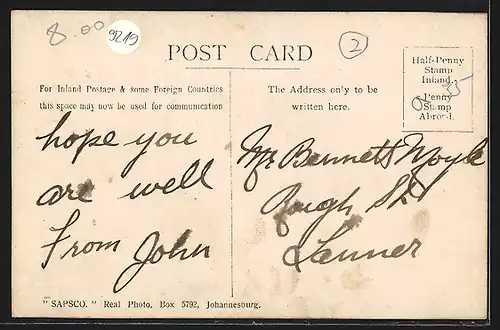 8.00
9219
2
POST CARD
Half-Penny
Stamp
Inland.
Penny
Stamp
Abroad.
For Inland Postage & some Foreign Countries
this space may now be used for communication
The Address only to be
written here.
hope you
are well
From John
Mr Bennett Moyle
Rough St
Lanner
"SAPSCO." Real Photo, Box 5792, Johannesburg.